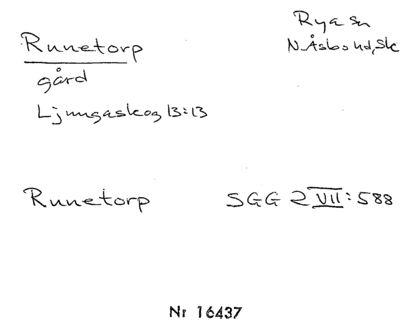 Runetorp
gård
Ljungaskog 13:13
Rya sn
N. Åsbo hd, Sk
Runetorp SGG 2 VII: 588
Nr 16437